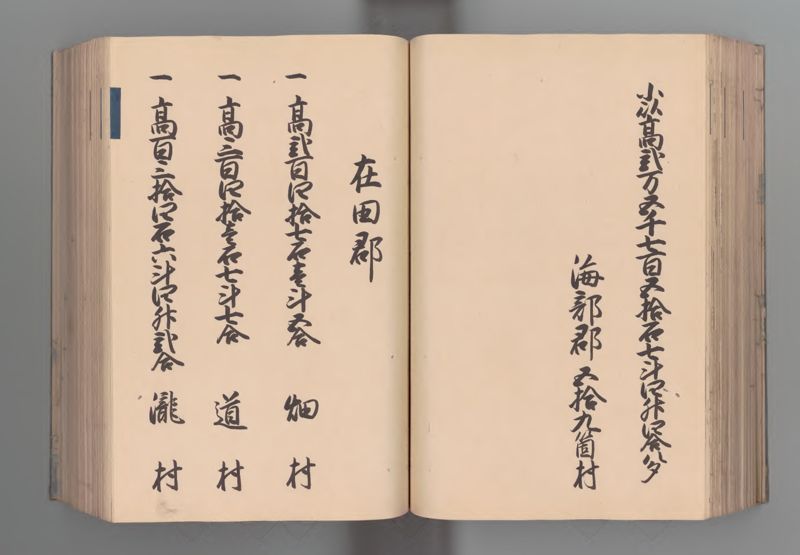 小以高弐万五千七百五拾石七斗四升四合八夕
海部郡 五拾九箇村
在田郡
一 高弐百四拾七石壱斗五合 畑村
一 高三百四拾壱石七斗七合 道村
一 高百三拾四石六斗四升弐合 瀧村